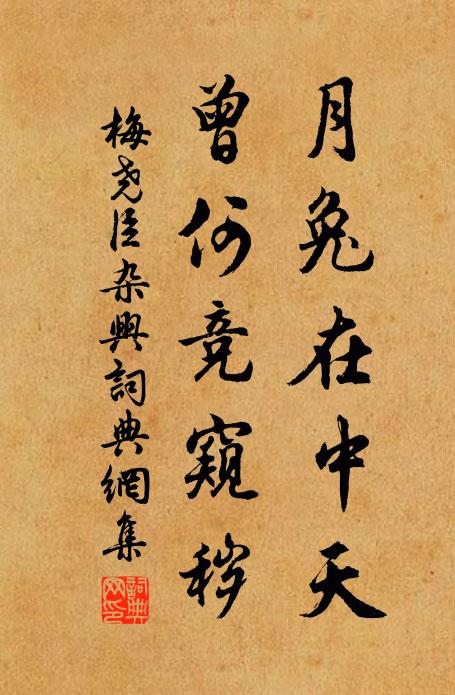 月兔在中天
曾何竞窥穃
梅尧臣杂興詞典網集
詞典网印